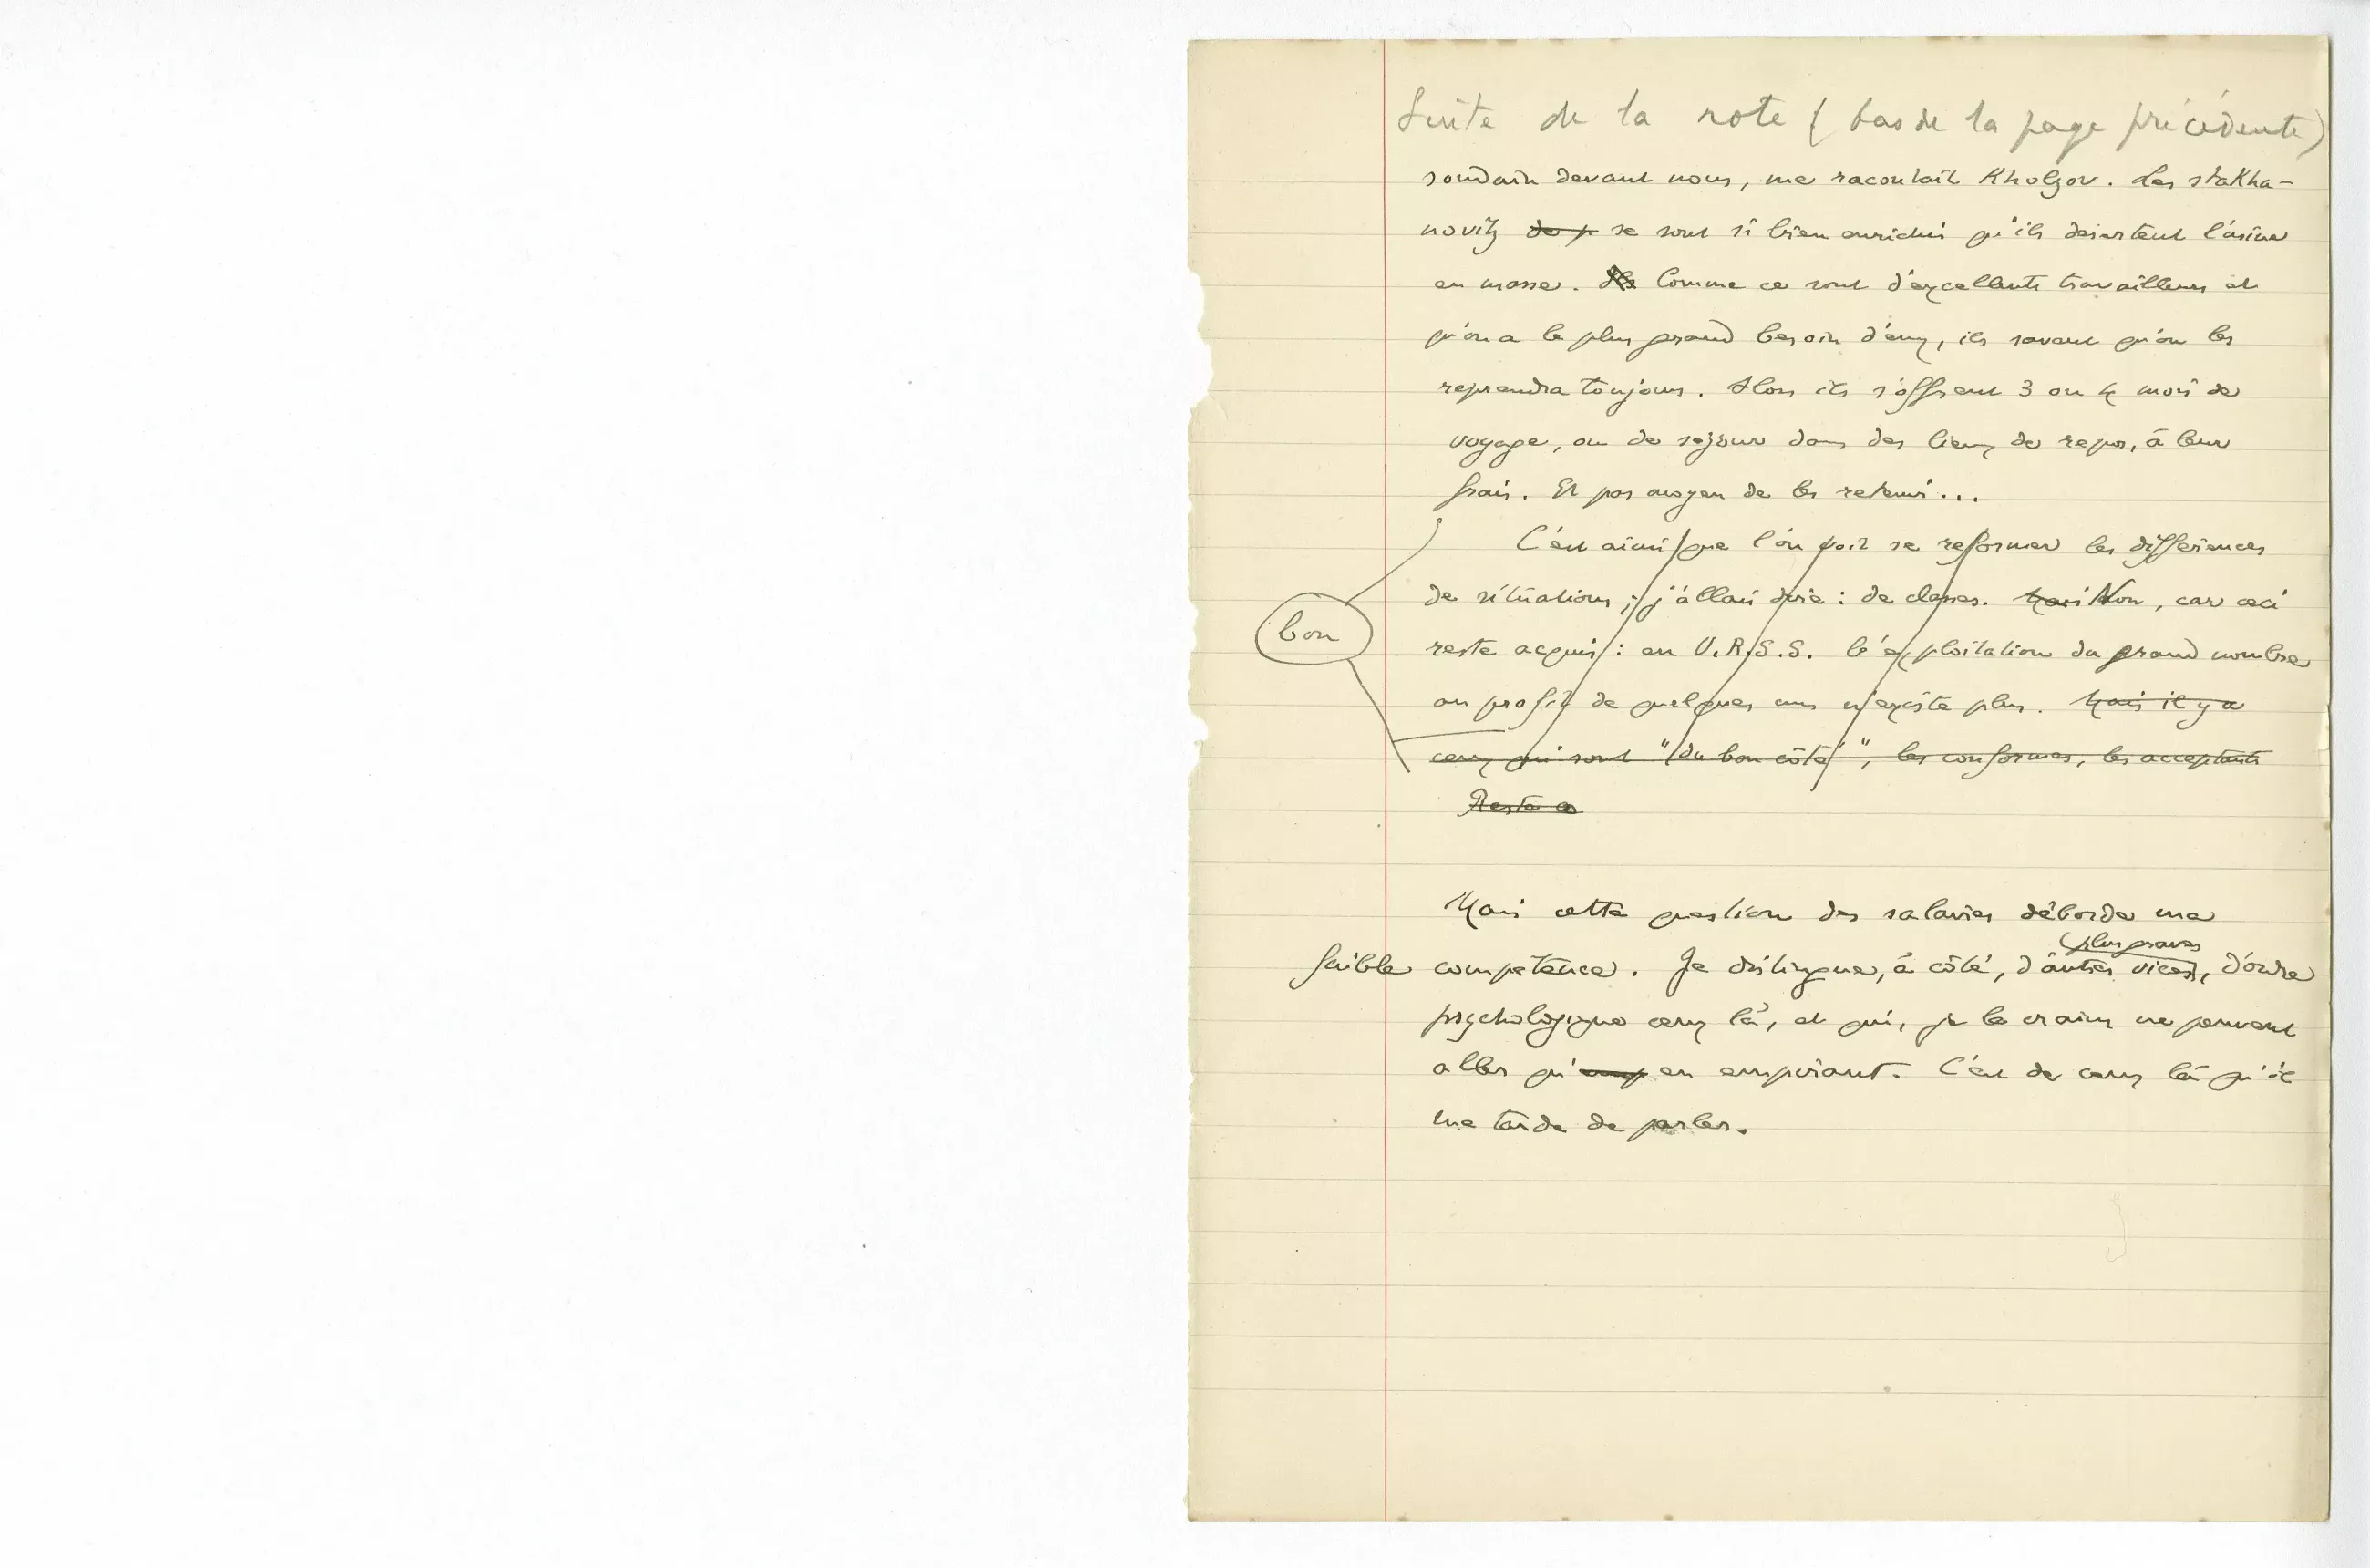 Suite de la note (bas de la page précédente)
soudain devant nous, me racontait Kholzov. Les stakha-
novitz se sont si bien enrichis qu'ils désertent l'usine
en masse. Comme ce sont d'excellents travailleurs et
qu'on a le plus grand besoin d'eux, ils savent qu'on les
reprendra toujours. Alors ils s'offrent 3 ou 4 mois de
voyage, ou de sejour dans des lieux de repos, à leur
frais. Et pas moyen de les retenir...
C'est ainsi que l'on voit se reformer les différences
de situations ; j'allais dire : de classes. Mais Non, car ceci
bon
reste acquis : en U.R.S.S. l'exploitation du grand nombre
au profit de quelques uns n'existe plus. Mais il y a
ceux qui sont "du bon côté", les conformes, les acceptants
Reste a
Mais cette question des salaires déborde ma
plus graves
faible compétence. Je distingue, à côté, d'autres vices, d'ordre
psychologique ceux là, et qui, je le crains ne peuvent
aller qu'en empirant. C'est de ceux là qu'il
me tarde de parler.